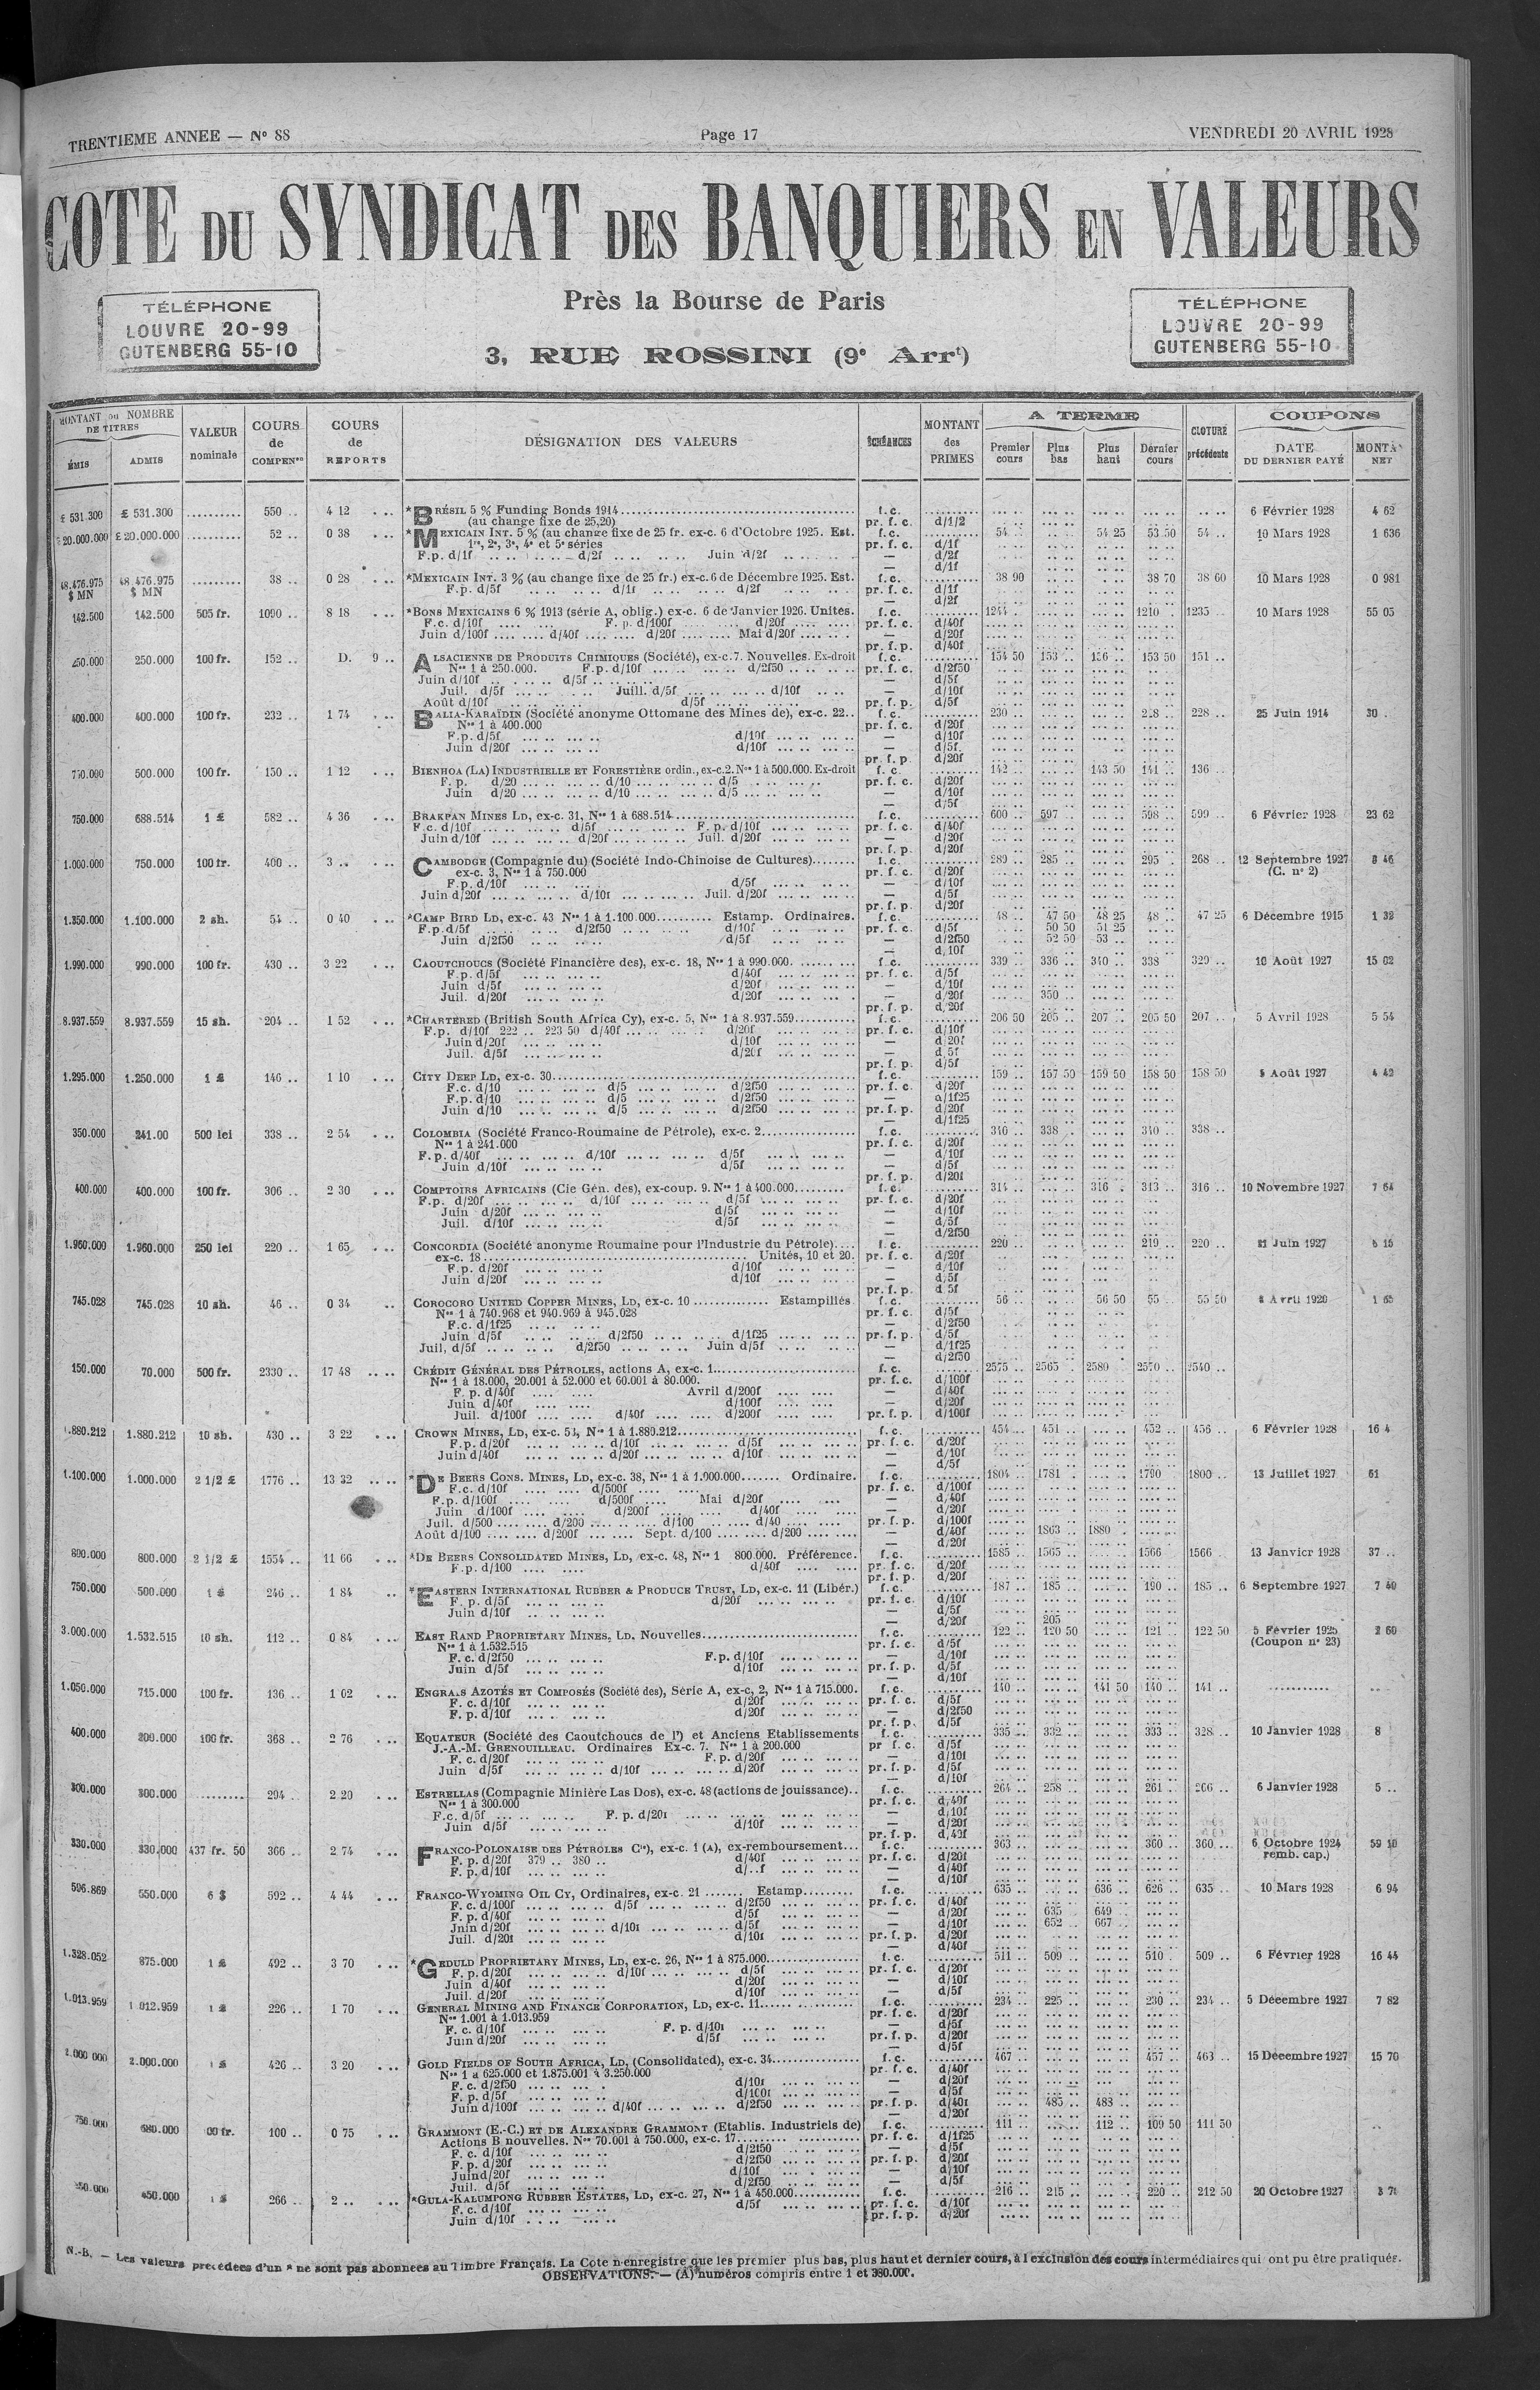 TRENTIEME ANNEE — N° 88 Page 17 VENDREDI 20 AVRIL 1928
COTE DU SYNDICAT DES BANQUIERS EN VALEURS
TÉLÉPHONE
LOUVRE 20-99
GUTENBERG 55-10
Près la Bourse de Paris
3, RUE ROSSINI (9e Arrt)
TÉLÉPHONE
LOUVRE 20-99
GUTENBERG 55-10
MONTANT ou NOMBRE DE TITRES
ÉMIS ADMIS
VALEUR nominale
COURS de COMPENon
COURS de REPORTS
DÉSIGNATION DES VALEURS
ÉCHÉANCES
MONTANT des PRIMES
A TERME
Premier cours Plus bas Plus haut Dernier cours
CLOTURE précédente
COUPONS
DATE DU DERNIER PAYÉ
NET
£ 531.300 £ 531.300 .......... 550 .. 4 12 *BRÉSIL 5 % Funding Bonds 1914 f.c. 6 Février 1928 4 62
(au change fixe de 25,20) pr. f. c. d/1/2
£ 20.000.000 £ 20.000.000 .......... 52 .. 0 38 *MEXICAIN INT. 5 % (au change fixe de 25 fr. ex-c. 6 d'Octobre 1925. Est. f.c. 54 .. 54 25 53 50 54 .. 10 Mars 1928 1 636
1re, 2e, 3e, 4e et 5e séries pr. f. c. d/1f
F.p. d/1f d/2f Juin d/2f — d/2f
— d/1f
48.476.975 48.476.975 .......... 38 .. 0 28 *MEXICAIN INT. 3 % (au change fixe de 25 fr.) ex-c. 6 de Décembre 1925. Est. f.c. 38 90 38 70 38 60 10 Mars 1928 0 981
$ MN $ MN F.p. d/5f d/1f d/2f pr. f. c. d/1f
— d/2f
142.500 142.500 505 fr. 1090 .. 8 18 *BONS MEXICAINS 6 % 1913 (série A, oblig.) ex-c. 6 de Janvier 1926. Unites. f.c. 1244 .. 1210 .. 1235 .. 10 Mars 1928 55 05
F.c. d/10f F. p. d/100f d/20f pr. f. c. d/40f
Juin d/100f d/40f d/20f Mai d/20f — d/20f
pr. f.p. d/40f
250.000 250.000 100 fr. 152 .. D. 9 .. ALSACIENNE DE PRODUITS CHIMIQUES (Société), ex-c.7. Nouvelles. Ex-droit f.c. 154 50 153 .. 156 .. 153 50 151 ..
Nos 1 à 250.000. F.p. d/10f d/2f50 pr. f. c. d/2f50
Juin d/10f d/5f — d/5f
Juil. d/5f Juill. d/5f d/10f — d/10f
Août d/10f d/5f pr. f. p. d/5f
400.000 400.000 100 fr. 232 .. 1 74 BALIA-KARAÏDIN (Société anonyme Ottomane des Mines de), ex-c. 22.. f.c. 230 .. 228 .. 228 .. 25 Juin 1914 30 .
Nos 1 à 400.000 pr. f. c. d/20f
F.p. d/5f d/10f — d/10f
Juin d/20f d/10f — d/5f
pr. f. p. d/20f
750.000 500.000 100 fr. 150 .. 1 12 BIENHOA (LA) INDUSTRIELLE ET FORESTIÈRE ordin., ex-c.2. Nos 1 à 500.000. Ex-droit f. c. 142 .. 143 50 141 .. 136 ..
F. p. d/20 d/10 d/5 pr. f. c. d/20f
Juin d/20 d/10 d/5 — d/10f
— d/5f
750.000 688.514 1 £ 582 .. 4 36 BRAKPAN MINES LD, ex-c. 31, Nos 1 à 688.514 f.c. 600 .. 597 .. 598 .. 599 .. 6 Février 1928 23 62
F.c. d/10f d/5f F. p. d/10f pr. f. c. d/40f
Juin d/10f d/20f Juil. d/20f — d/20f
pr. f. p. d/20f
1.000.000 750.000 100 fr. 400 .. 3 .. CAMBODGE (Compagnie du) (Société Indo-Chinoise de Cultures) f.c. 289 .. 285 .. 295 . 268 .. 12 Septembre 1927 8 46
ex-c. 3, Nos 1 à 750.000 pr. f. c. d/20f (C. n° 2)
F.p. d/10f d/5f — d/10f
Juin d/20f d/10f Juil. d/20f — d/5f
pr. f. p. d/20f
1.350.000 1.100.000 2 sh. 54 .. 0 40 *CAMP BIRD LD, ex-c. 43 Nos 1 à 1.100.000 Estamp. Ordinaires. f.c. 48 .. 47 50 48 25 48 .. 47 25 6 Décembre 1915 1 32
F.p. d/5f d/2f50 d/10f pr. f. c. d/5f 50 50 51 25
Juin d/2f50 d/5f — d/2f50 52 50 53 ..
— d, 10f
1.990.000 990.000 100 fr. 430 .. 3 22 CAOUTCHOUCS (Société Financière des), ex-c. 18, Nos 1 à 990.000. f.c. 339 .. 336 .. 340 .. 338 .. 329 .. 10 Août 1927 15 62
F.p. d/5f d/40f pr. f. c. d/5f
Juin d/5f d/20f — d/10f
Juil. d/20f d/20f — d/20f 350 ..
pr. f. p. d/20f
8.937.559 8.937.559 15 sh. 204 .. 1 52 *CHARTERED (British South Africa Cy), ex-c. 5, Nos 1 à 8.937.559 f.c. 206 50 205 .. 207 .. 205 50 207 .. 5 Avril 1928 5 54
F.p. d/10f 222 .. 223 50 d/40f d/20f pr. f. c. d/10f
Juin d/20f d/10f — d 20f
Juil. d/5f d/20f — d 5f
pr. f. p. d/5f
1.295.000 1.250.000 1 £ 146 .. 1 10 CITY DEEP LD, ex-c. 30 f.c. 159 .. 157 50 159 50 158 50 158 50 Août 1927 4 42
F.c. d/10 d/5 d/2f50 pr. f. c. d/20f
F.p. d/10 d/5 d/2f50 — d/1f25
Juin d/10 d/5 d/2f50 pr. f. p. d/20f
— d/1f25
350.000 241.00 500 lei 338 .. 2 54 COLOMBIA (Société Franco-Roumaine de Pétrole), ex-c. 2 f.c. 340 .. 338 . 340 .. 338 ..
Nos 1 à 241.000 pr. f. c. d/20f
F.p. d/40f d/10f d/5f — d/10f
Juin d/10f d/5f — d/5f
pr. f. p. d/20f
400.000 400.000 100 fr. 306 .. 2 30 COMPTOIRS AFRICAINS (Cie Gén. des), ex-coup. 9. Nos 1 à 400.000 f.c. 314 .. 316 . 313 .. 316 .. 10 Novembre 1927 7 64
F.p. d/20f d/10f d/5f pr. f. c. d/20f
Juin d/20f d/5f — d/10f
Juil. d/10f d/5f — d/5f
— d/2f50
1.960.000 1.960.000 250 lei 220 .. 1 65 CONCORDIA (Société anonyme Roumaine pour l'Industrie du Pétrole) f.c. 220 .. 219 .. 220 .. Juin 1927
ex-c. 18 Unités, 10 et 20. pr. f. c. d/20f
F.p. d/20f d/10f — d/10f
Juin d/20f d/10f — d/5f
pr. f. p. d 5f
745.028 745.028 10 sh. 46 .. 0 34 COROCORO UNITED COPPER MINES, LD, ex-c. 10 Estampillés f.c. 56 .. 56 50 55 .. 55 50 Avril 1920 1 65
Nos 1 à 740.968 et 940.969 à 945.028 pr. f. c. d/5f
F.c. d/1f25 — d/2f50
Juin d/5f d/2f50 d/1f25 pr. f. p. d/5f
Juil. d/5f d/2f50 Juin d/5f — d/1f25
— d/2f50
150.000 70.000 500 fr. 2330 .. 17 48 CRÉDIT GÉNÉRAL DES PÉTROLES, actions A, ex-c. 1 f.c. 2575 .. 2565 .. 2580 .. 2570 .. 2540 ..
Nos 1 à 18.000, 20.001 à 52.000 et 60.001 à 80.000. pr. f.c. d/100f
F. p. d/40f Avril d/200f — d/40f
Juin d/40f d/100f — d/20f
Juil. d/100f d/40f d/200f pr. f. p. d/100f
1.880.212 1.880.212 10 sh. 430 .. 3 22 CROWN MINES, LD, ex-c. 54, Nos 1 à 1.880.212 f.c. 454 .. 451 .. 452 .. 456 .. 6 Février 1928 16 4
F.p. d/20f d/10f d/5f pr. f. c. d/20f
Juin d/40f d/20f d/10f — d/10f
— d/5f
1.100.000 1.000.000 2 1/2 £ 1776 .. 13 32 *DE BEERS CONS. MINES, LD, ex-c. 38, Nos 1 à 1.000.000 Ordinaire. f.c. 1804 .. 1781 . 1790 . 1800 .. 13 Juillet 1927 61
F.c. d/10f d/500f pr. f. c. d/100f
F.p. d/100f d/500f Mai d/20f — d/40f
Juin d/100f d/200f d/40f — d/20f
Juil. d/500 d/200 d/100 d/40 pr. f. p. d/100f
Août d/100 d/200f Sept. d/100 d/200 — d/40f 1863 .. 1880 .
— d/20f
800.000 800.000 2 1/2 £ 1554 .. 11 66 *DE BEERS CONSOLIDATED MINES, LD, ex-c. 48, Nos 1 800.000. Préférence. f.c. 1585 .. 1565 .. 1566 1566 . 13 Janvier 1928 37 ..
F.p. d/100 d/40f pr. f. c. d/20f
pr. f. p. d/20f
750.000 500.000 1 £ 246 .. 1 84 *EASTERN INTERNATIONAL RUBBER & PRODUCE TRUST, LD, ex-c. 11 (Libér.) f.c. 187 .. 185 .. 190 .. 185 .. 6 Septembre 1927 7 40
F. p. d/5f d/20f pr. f. c. d/10f
Juin d/10f — d/5f
— d/20f 205 ..
3.000.000 1.532.515 10 sh. 112 .. 0 84 EAST RAND PROPRIETARY MINES, LD. Nouvelles f.c. 122 .. 120 50 121 .. 122 50 5 Février 1925 2 60
Nos 1 à 1.532.515 pr. f. c. d/5f (Coupon n° 23)
F. c. d/2f50 F.p. d/10f — d/10f
Juin d/5f d/10f pr. f. p. d/5f
— d/10f
1.050.000 715.000 100 fr. 136 .. 1 02 ENGRAIS AZOTÉS ET COMPOSÉS (Société des), Série A, ex-c, 2, Nos 1 à 715.000. f.c. 140 .. 141 50 140 .. 141 ..
F. c. d/10f d/20f pr. f. c. d/5f
F. p. d/10f d/20f — d/2f50
pr. f. p. d/5f
400.000 200.000 100 fr. 368 .. 2 76 EQUATEUR (Société des Caoutchoucs de l') et Anciens Etablissements f.c. 335 .. 332 .. 333 .. 328 .. 10 Janvier 1928 8
J.-A.-M. GRENOUILLEAU. Ordinaires Ex-c. 7. Nos 1 à 200.000 pr f. c. d/5f
F. c. d/20f F. p. d/20f — d/10f
Juin d/5f d/10f d/20f pr. f. p. d/5f
— d/10f
300.000 300.000 .......... 294 .. 2 20 ESTRELLAS (Compagnie Minière Las Dos), ex-c. 48 (actions de jouissance).. f.c. 264 .. 258 .. 261 .. 266 .. 6 Janvier 1928 5 ..
Nos 1 à 300.000 pr. f. c. d/40f
F.c. d/5f F. p. d/20f — d/10f
Juin d/5f d/10f — d/20f
pr. f. p. d/40f
330.000 330.000 437 fr. 50 366 .. 2 74 FRANCO-POLONAISE DES PÉTROLES Cie), ex-c. 1 (A), ex-remboursement... f.c. 363 .. 360 .. 360 .. 6 Octobre 1924 59 10
F. p. d/20f 379 .. 380 .. d/40f pr. f. c. d/20f remb. cap.)
F. p. d/10f d/..f — d/40f
— d/10f
596.869 550.000 6 $ 592 .. 4 44 FRANCO-WYOMING OIL CY, Ordinaires, ex-c. 21 Estamp f.c. 635 .. 636 .. 626 .. 635 .. 10 Mars 1928 6 94
F. c. d/100f d/5f d/2f50 pr. f. c. d/40f
F. p. d/40f d/5f — d/20f 635 649 ..
Juin d/20f d/10f d/5f — d/10f 652 .. 667 ..
Juil. d/20f d/10f pr. f. p. d/20f
— d/40f
1.328.052 875.000 1 £ 492 .. 3 70 *GEDULD PROPRIETARY MINES, LD, ex-c. 26, Nos 1 à 875.000 f.c. 511 .. 509 .. 510 .. 509 .. 6 Février 1928 16 44
F. p. d/20f d/10f d/5f pr. f. c. d/20f
Juin d/40f d/20f — d/10f
Juil. d/20f d/10f — d/5f
1.013.959 1 012.959 1 £ 226 .. 1 70 GENERAL MINING AND FINANCE CORPORATION, LD, ex-c. 11 f.c. 234 .. 225 .. 230 .. 234 .. 5 Décembre 1927 7 82
Nos 1.001 à 1.013.959 pr. f. c. d/20f
F. c. d/10f F. p. d/10f — d/5f
Juin d/20f d/5f pr. f. p. d/20f
— d/5f
2.000 000 2.000.000 1 £ 426 .. 3 20 GOLD FIELDS OF SOUTH AFRICA, LD, (Consolidated), ex-c. 34 f.c. 467 .. 457 .. 463 .. 15 Décembre 1927 15 70
Nos 1 à 625.000 et 1.875.001 à 3.250.000 pr. f. c. d/40f
F. c. d/2f50 d/10f — d/20f
F. p. d/5f d/100f — d/5f
Juin d/100f d/40f d/2f50 pr. f. p. d/40f 485 .. 483 ..
— d/20f
750.000 680.000 00 fr. 100 .. 0 75 GRAMMONT (E.-C.) ET DE ALEXANDRE GRAMMONT (Etablis. Industriels de) f.c. 111 .. 112 .. 109 50 111 50
Actions B nouvelles. Nos 70.001 à 750.000, ex-c. 17 pr. f. c. d/1f25
F. c. d/10f d/2f50 — d/5f
F. p. d/20f d/2f50 pr. f. p. d/20f
Juin d/20f d/10f — d/10f
Juil. d/5f d/2f50 — d/5f
450.000 266 .. 2 .. *GULA-KALUMPONG RUBBER ESTATES, LD, ex-c. 27, Nos 1 à 450.000 f.c. 216 .. 215 .. 220 .. 212 50 20 Octobre 1927
F. c. d/10f d/5f pr. f. c. d/10f
Juin d/10f pr. f. p. d/20f
N.-B. — Les valeurs précédées d'un * ne sont pas abonnées au Timbre Français. La Cote n'enregistre que les premier plus bas, plus haut et dernier cours, à l'exclusion des cours intermédiaires qui ont pu être pratiqués.
OBSERVATIONS. — (A) numéros compris entre 1 et 380.000.